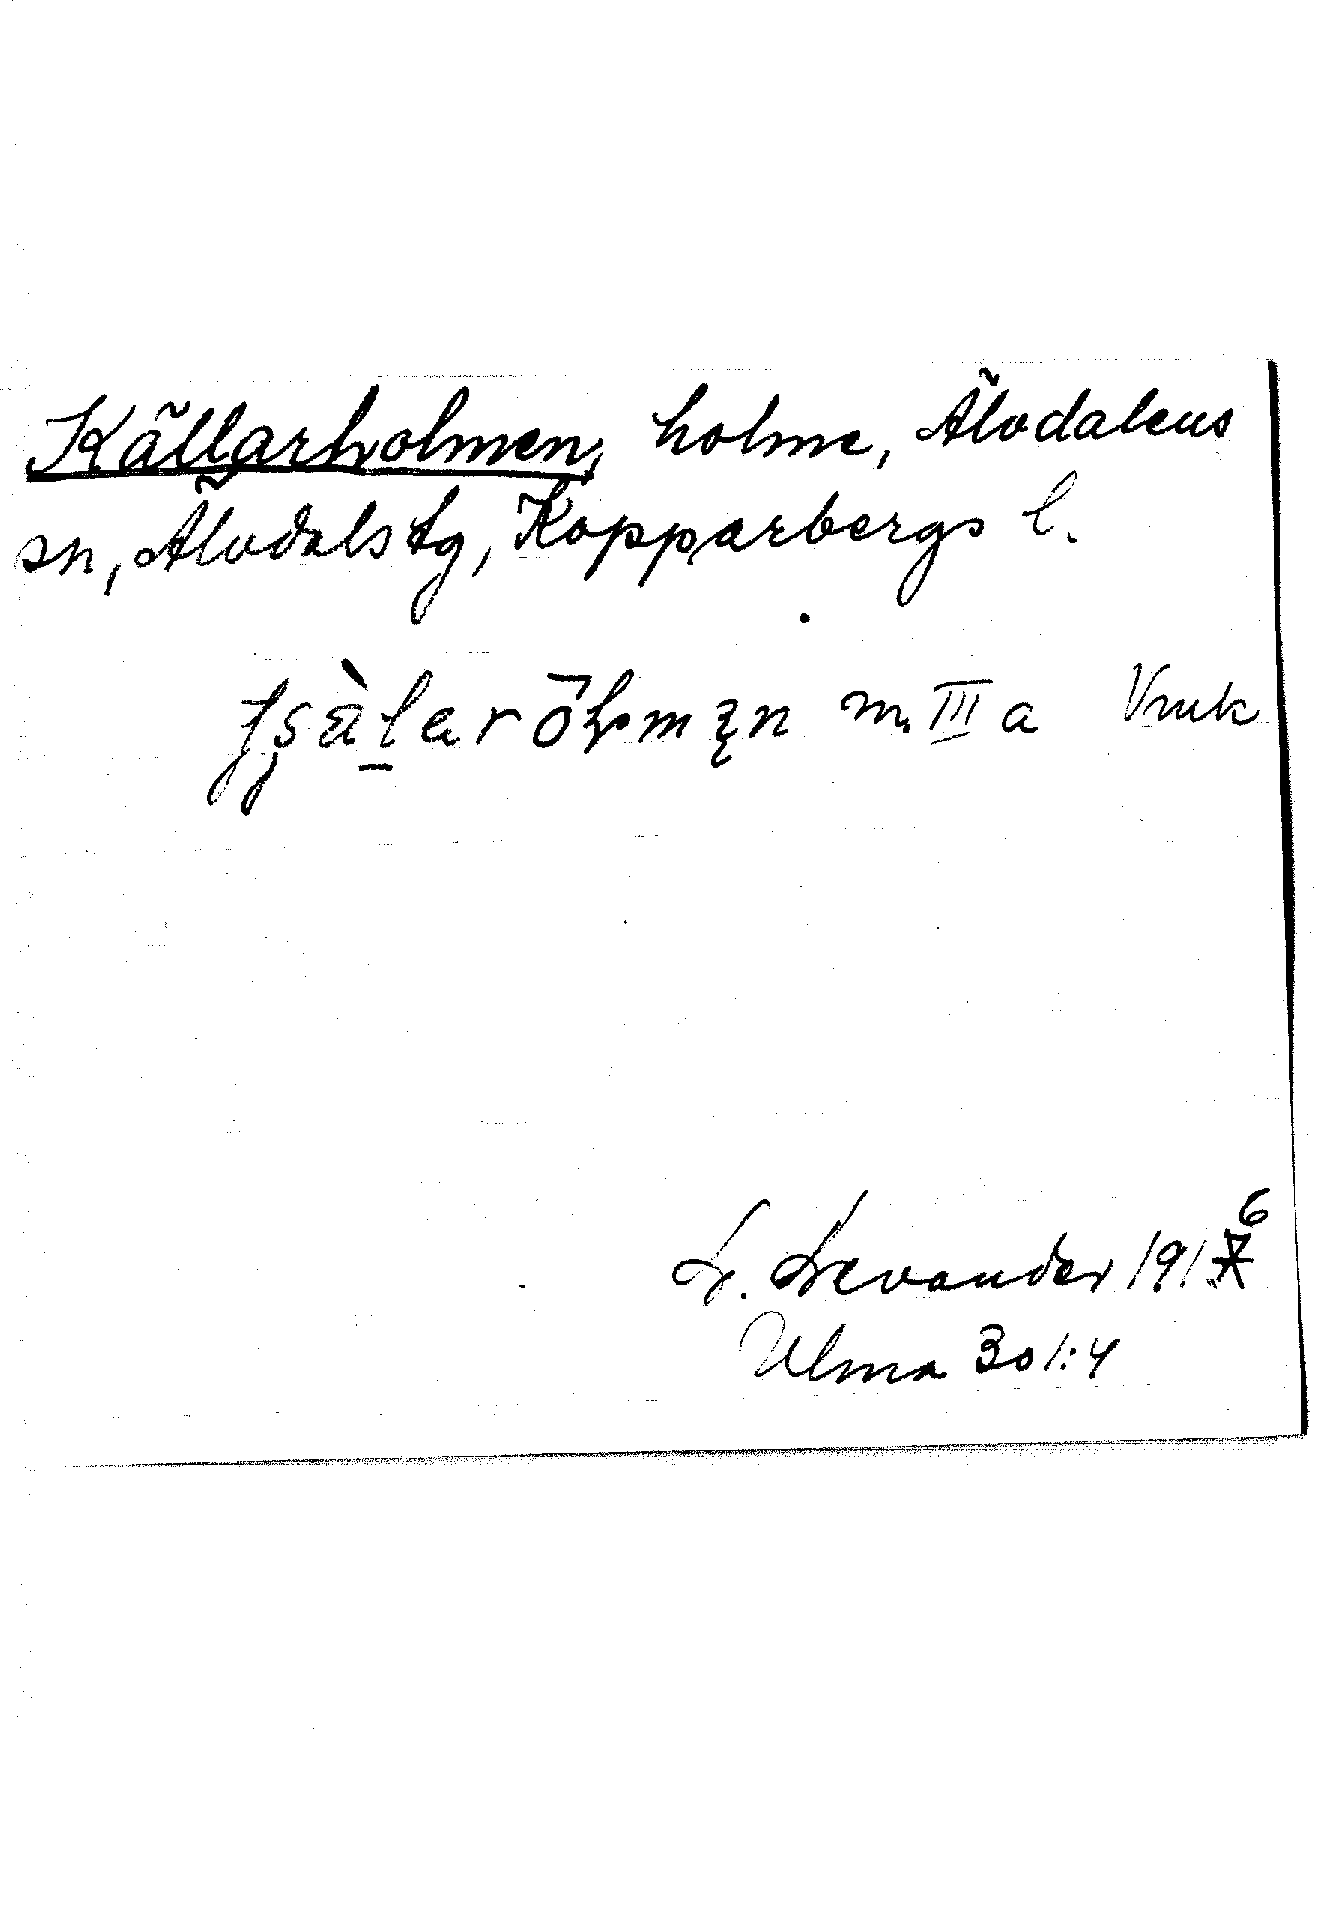 Källarholmen, holme, Älvdalens
sn, Älvdalstg, Kopparbergs l.
m. III a
L. Levander 1916
Ulma 301:4